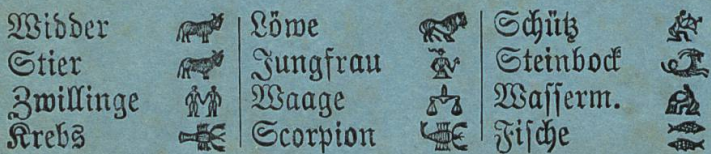 Widder
Stier
Zwillinge
Krebs
Löwe
Jungfrau
Waage
Scorpion
Schütz
Steinbock
Wasserm.
Fische